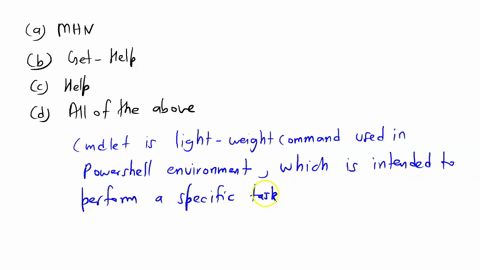 (a) MHN
(b) Get-Help
(c) Help
(d) All of the above
Cmdlet is light-weight command used in
Powershell environment, which is intended to
perform a specific task